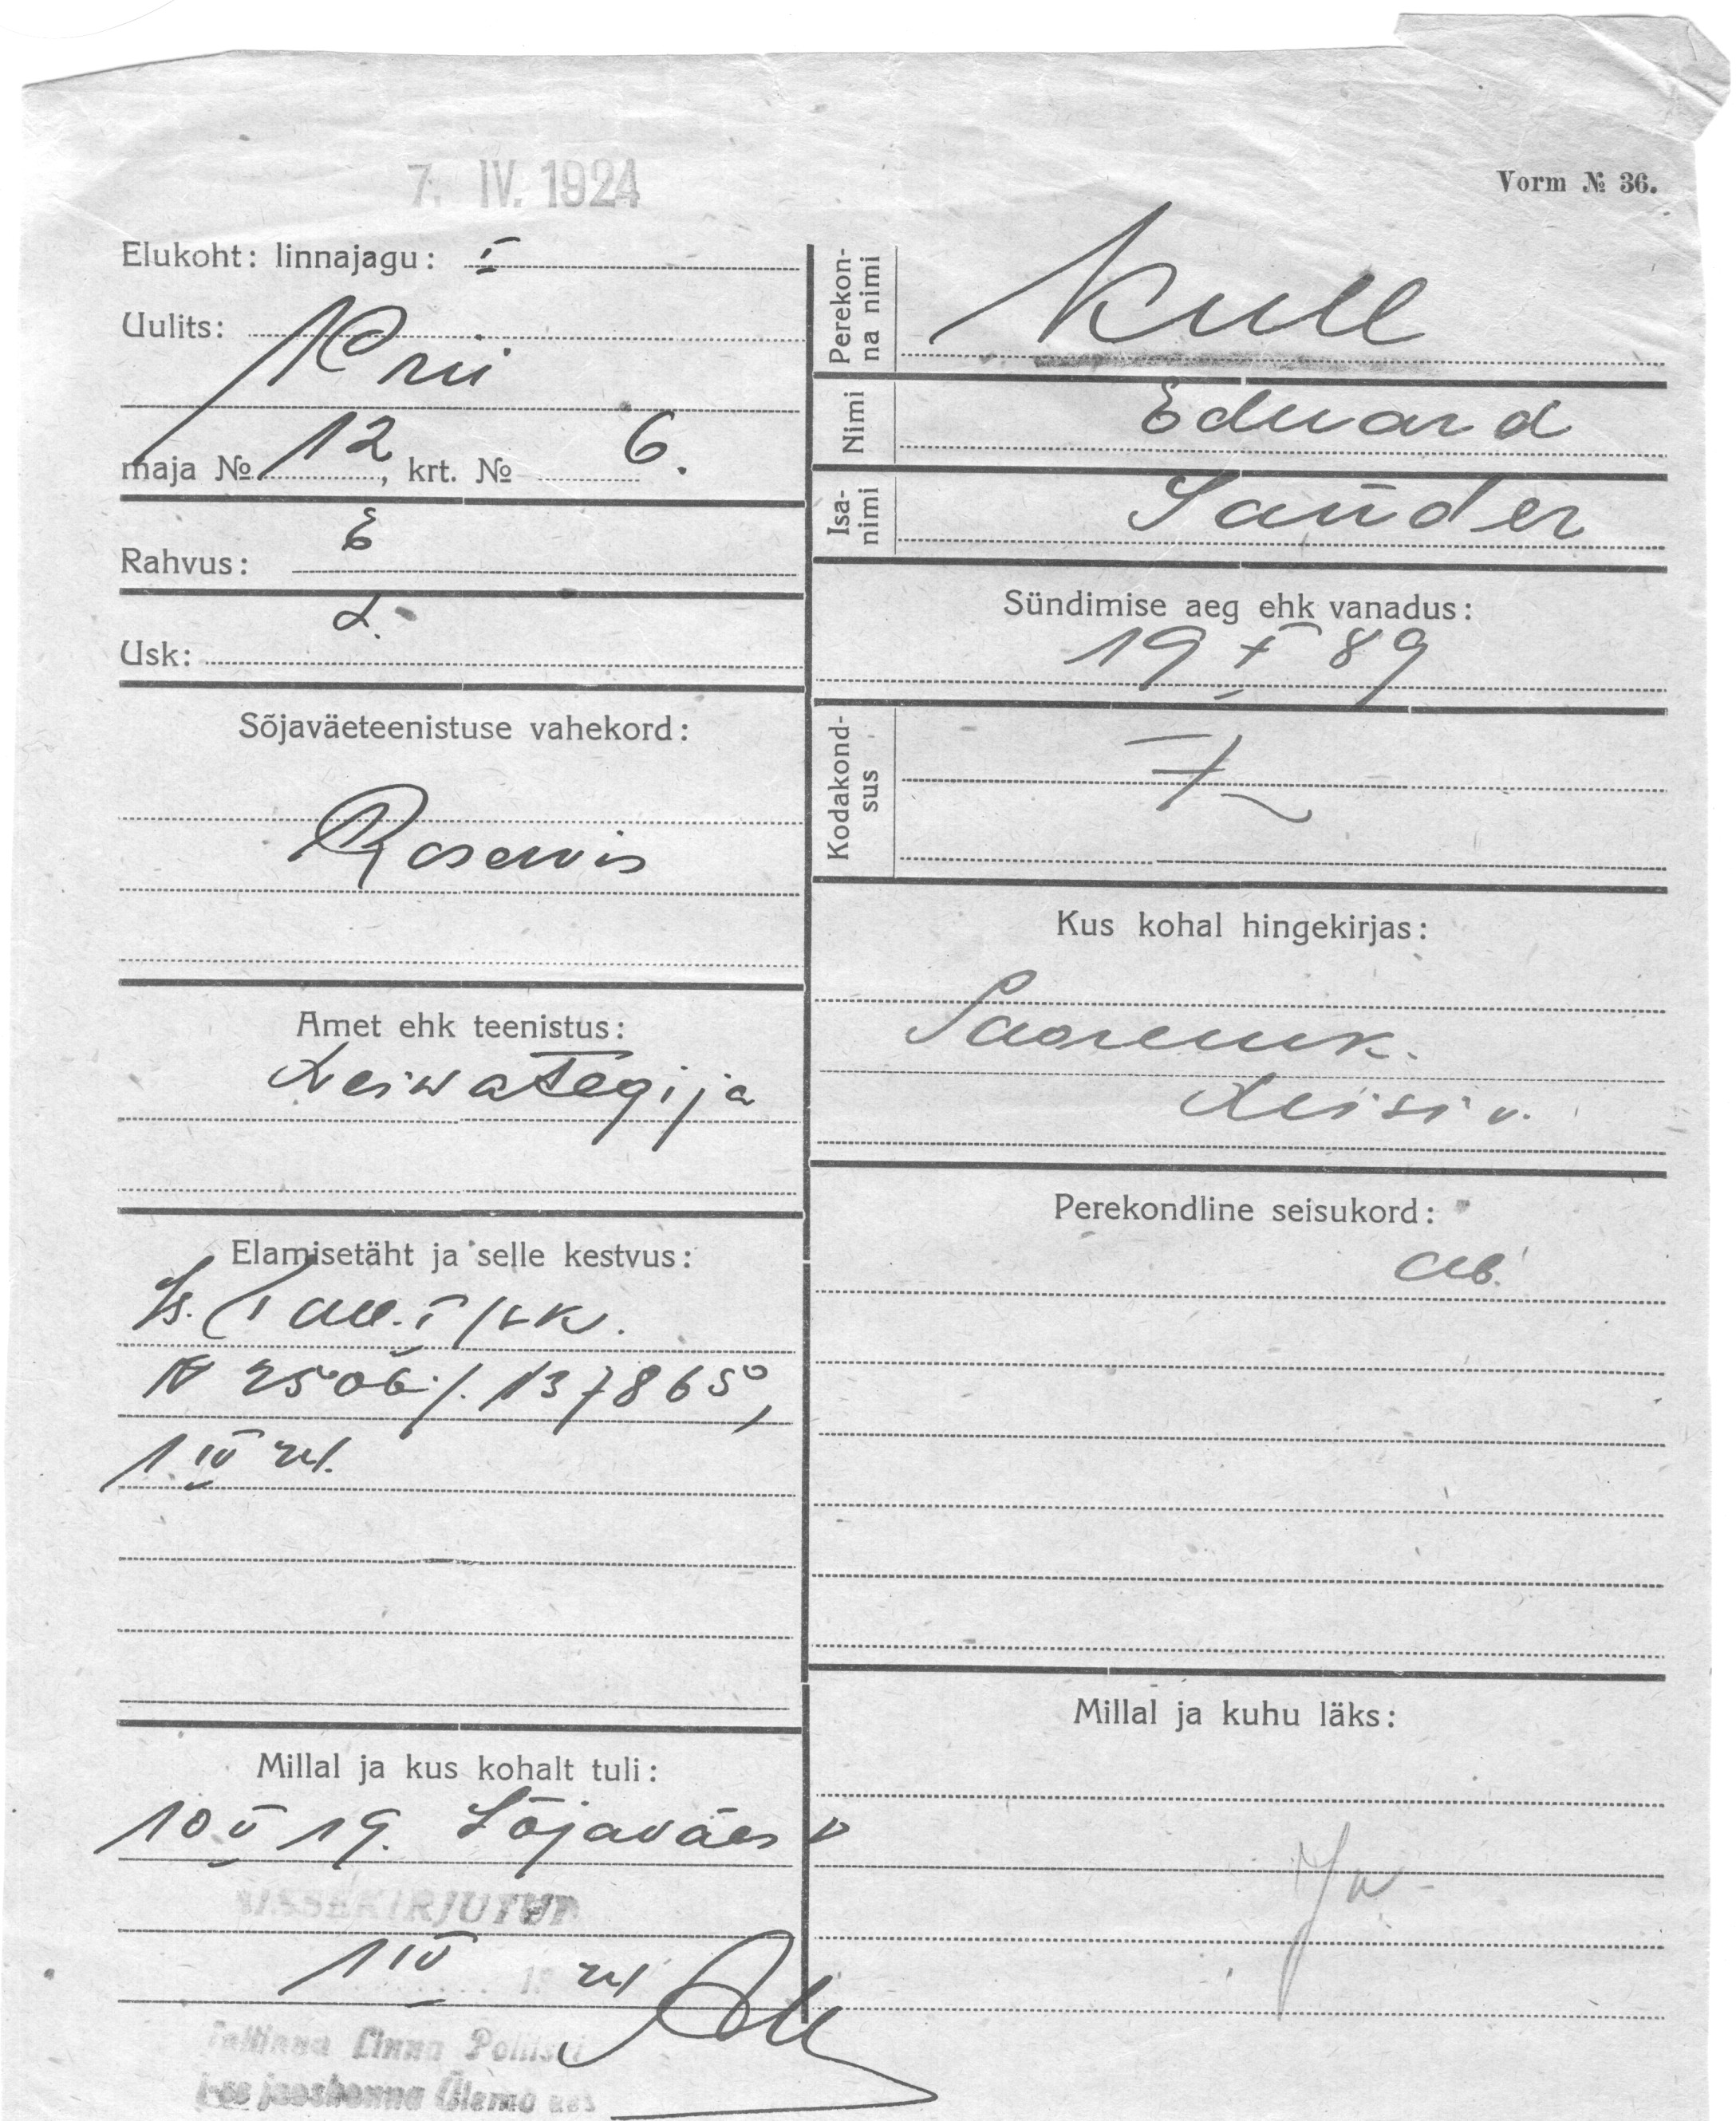 7. IV. 1924
Vorm № 36.
Elukoht: linnajagu: I
Uulits:
Krii
maja № 12, krt. № 6.
Rahvus: E
Usk: L.
Sõjaväeteenistuse vahekord:
Reservis
Amet ehk teenistus:
Leiwategija
Elamisetäht ja selle kestvus:
Is. Tall. I jsk.
№ 2506 / 137865,
1 IV 24.
Millal ja kus kohalt tuli:
10 V 19. Sõjaväes
SISSEKIRJUTUD
1 IV 24
Tallinna Linna Politsei
I-se jaoskonna Ülema
Perekonna nimi
Kull
Nimi
Eduard
Isanimi
Sander
Sündimise aeg ehk vanadus:
19 X 89
Kodakondsus
Kus kohal hingekirjas:
Saaremk.
Leisi v.
Perekondline seisukord:
Ab.
Millal ja kuhu läks: